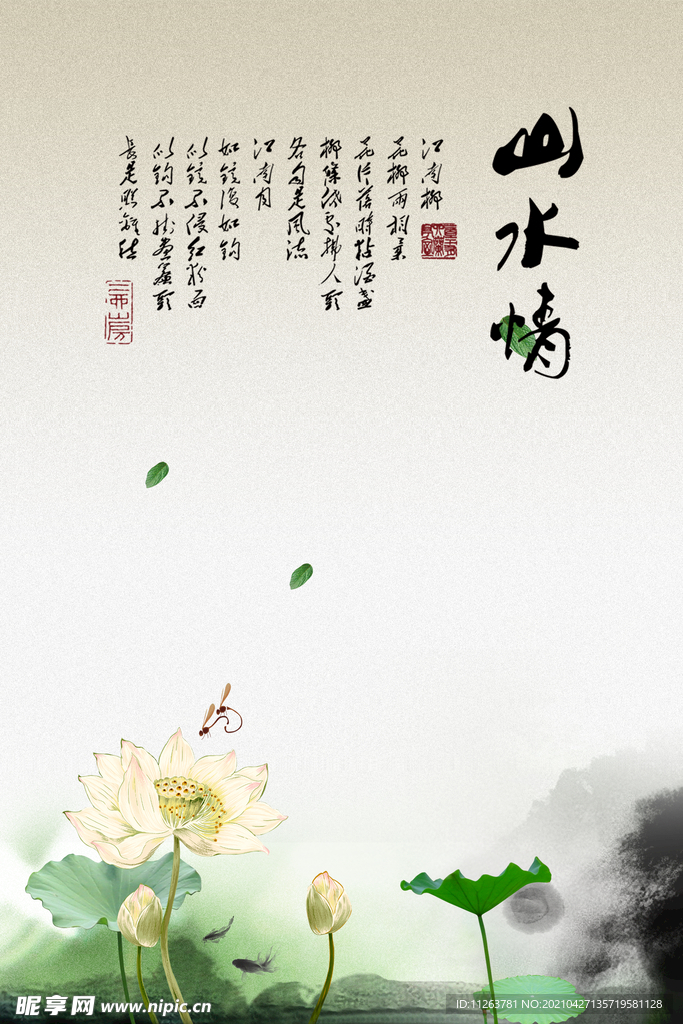 山水情
江南柳
花柳兩相柔
花片落時粘酒盞
柳條低處拂人頭
各自是風流
江南月
如鏡復如鉤
似鏡不侵紅粉面
似鉤不掛畫簾頭
長是照離愁
昵享网 www.nipic.cn
ID:11263781 NO:20210427135719581128